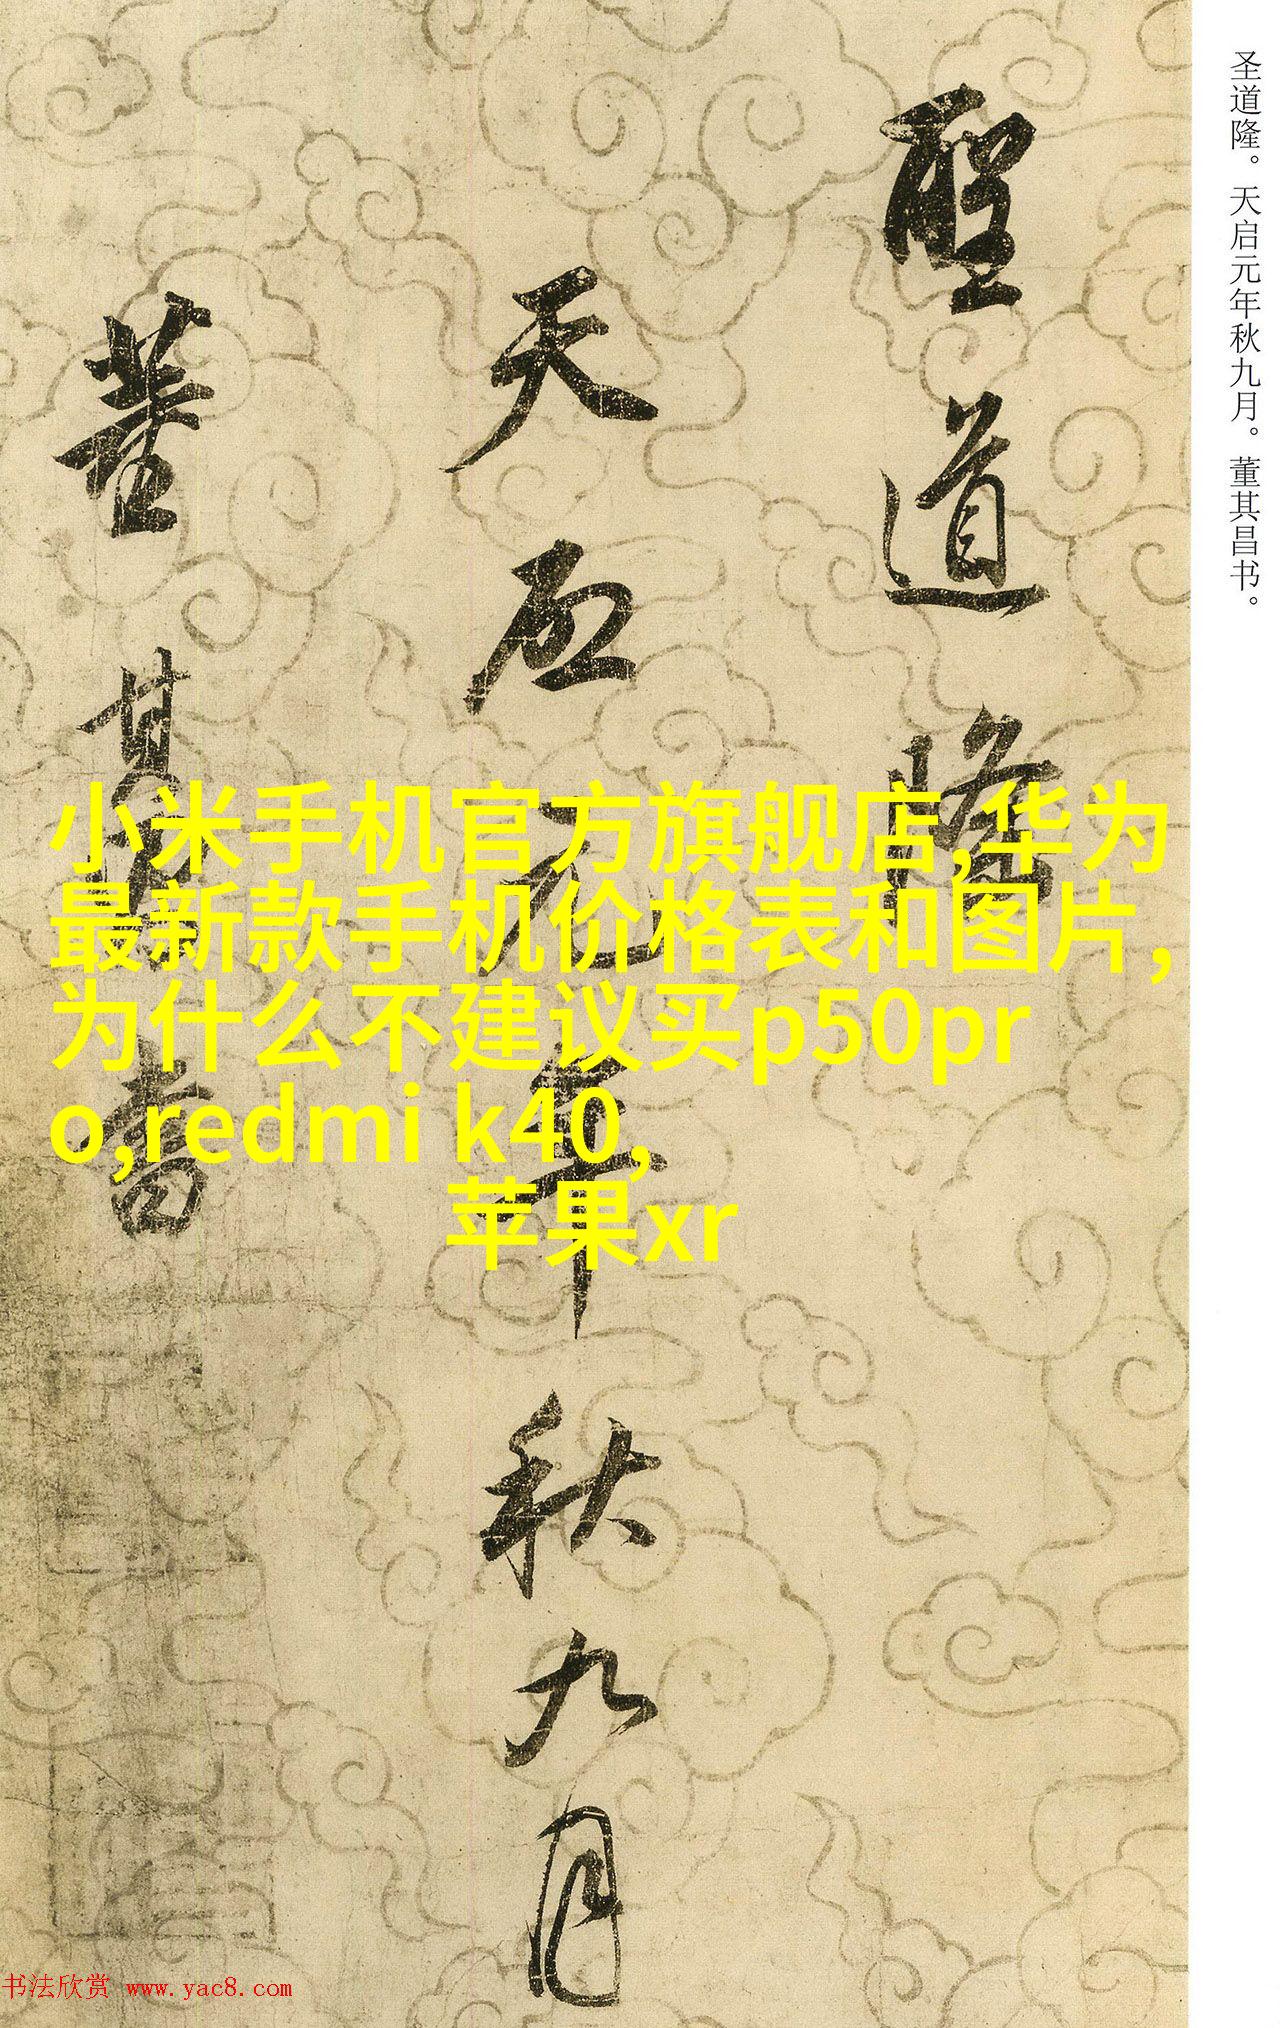 圣道隆。天启元年秋九月。董其昌书。
聖道隆
天启元年秋九月
董其昌書
小米手机官方旗舰店,华为
最新款手机价格表和图片,
为什么不建议买p50pr
o,redmi k40,
苹果xr
书法欣赏 www.yac8.com